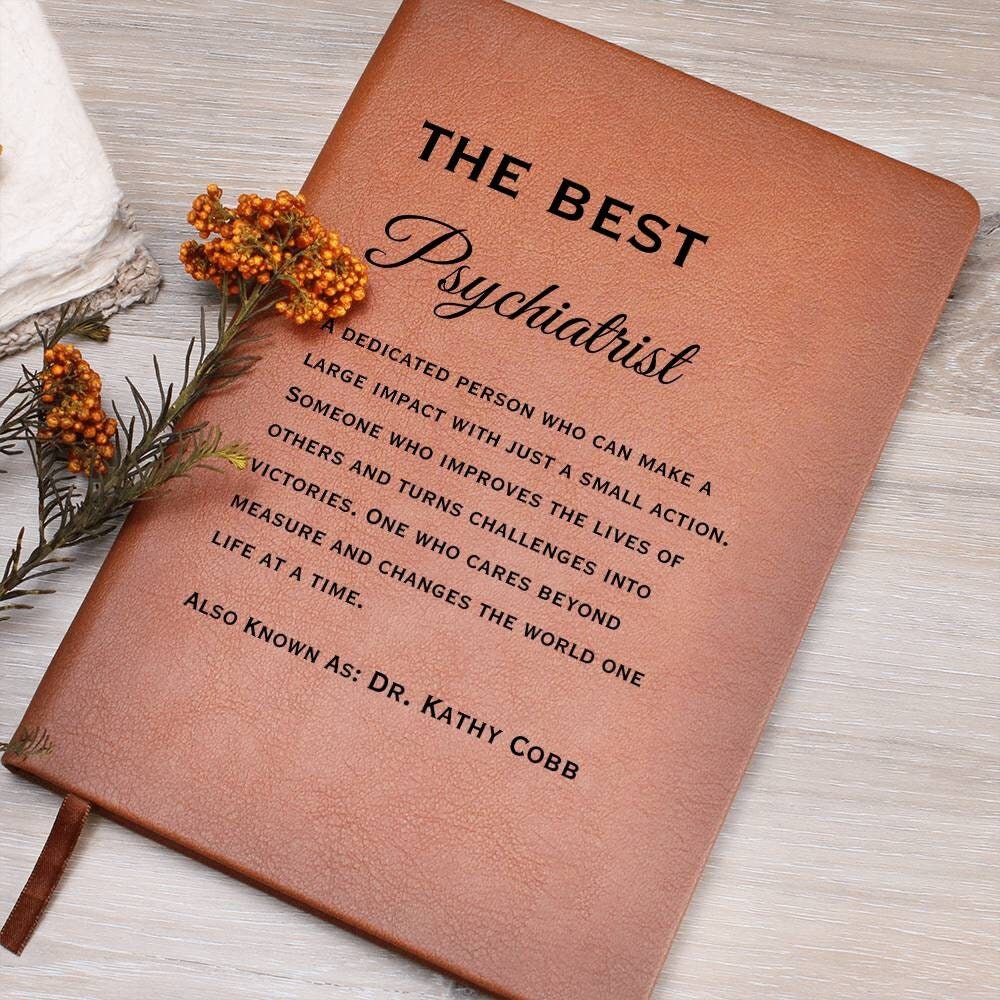 THE BEST
Psychiatrist
A DEDICATED PERSON WHO CAN MAKE A
LARGE IMPACT WITH JUST A SMALL ACTION.
SOMEONE WHO IMPROVES THE LIVES OF
OTHERS AND TURNS CHALLENGES INTO
VICTORIES. ONE WHO CARES BEYOND
MEASURE AND CHANGES THE WORLD ONE
LIFE AT A TIME.
ALSO KNOWN AS: DR. KATHY COBB